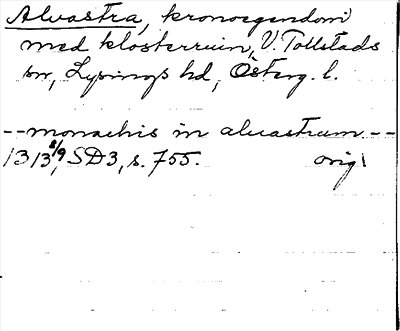 Alvastra, kronoegendom
med klosterruin, V. Tollstads
sn, Lysings hd, Österg. l.
--monachis in aluastrum--
1313 8/9, SD3, s. 755. orig!